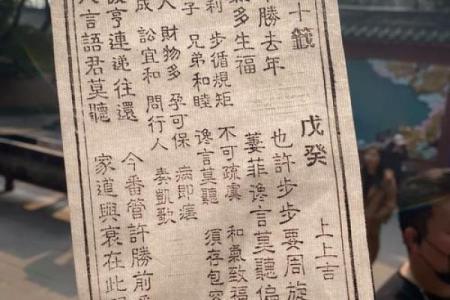 十籤 戊癸 上上吉
勝去年 也許步步要周旋
多生福 萋菲讒言莫聽偏
利 步循規矩 不可疏虞 和氣致福
子 兄弟和睦 讒言莫聽 須存包容
人 財物多 孕可保 病即瘥
成 訟宜和 問行人 奏凱歌
亨連遞往還 今番管許勝前
人言語君莫聽 家道興衰在此